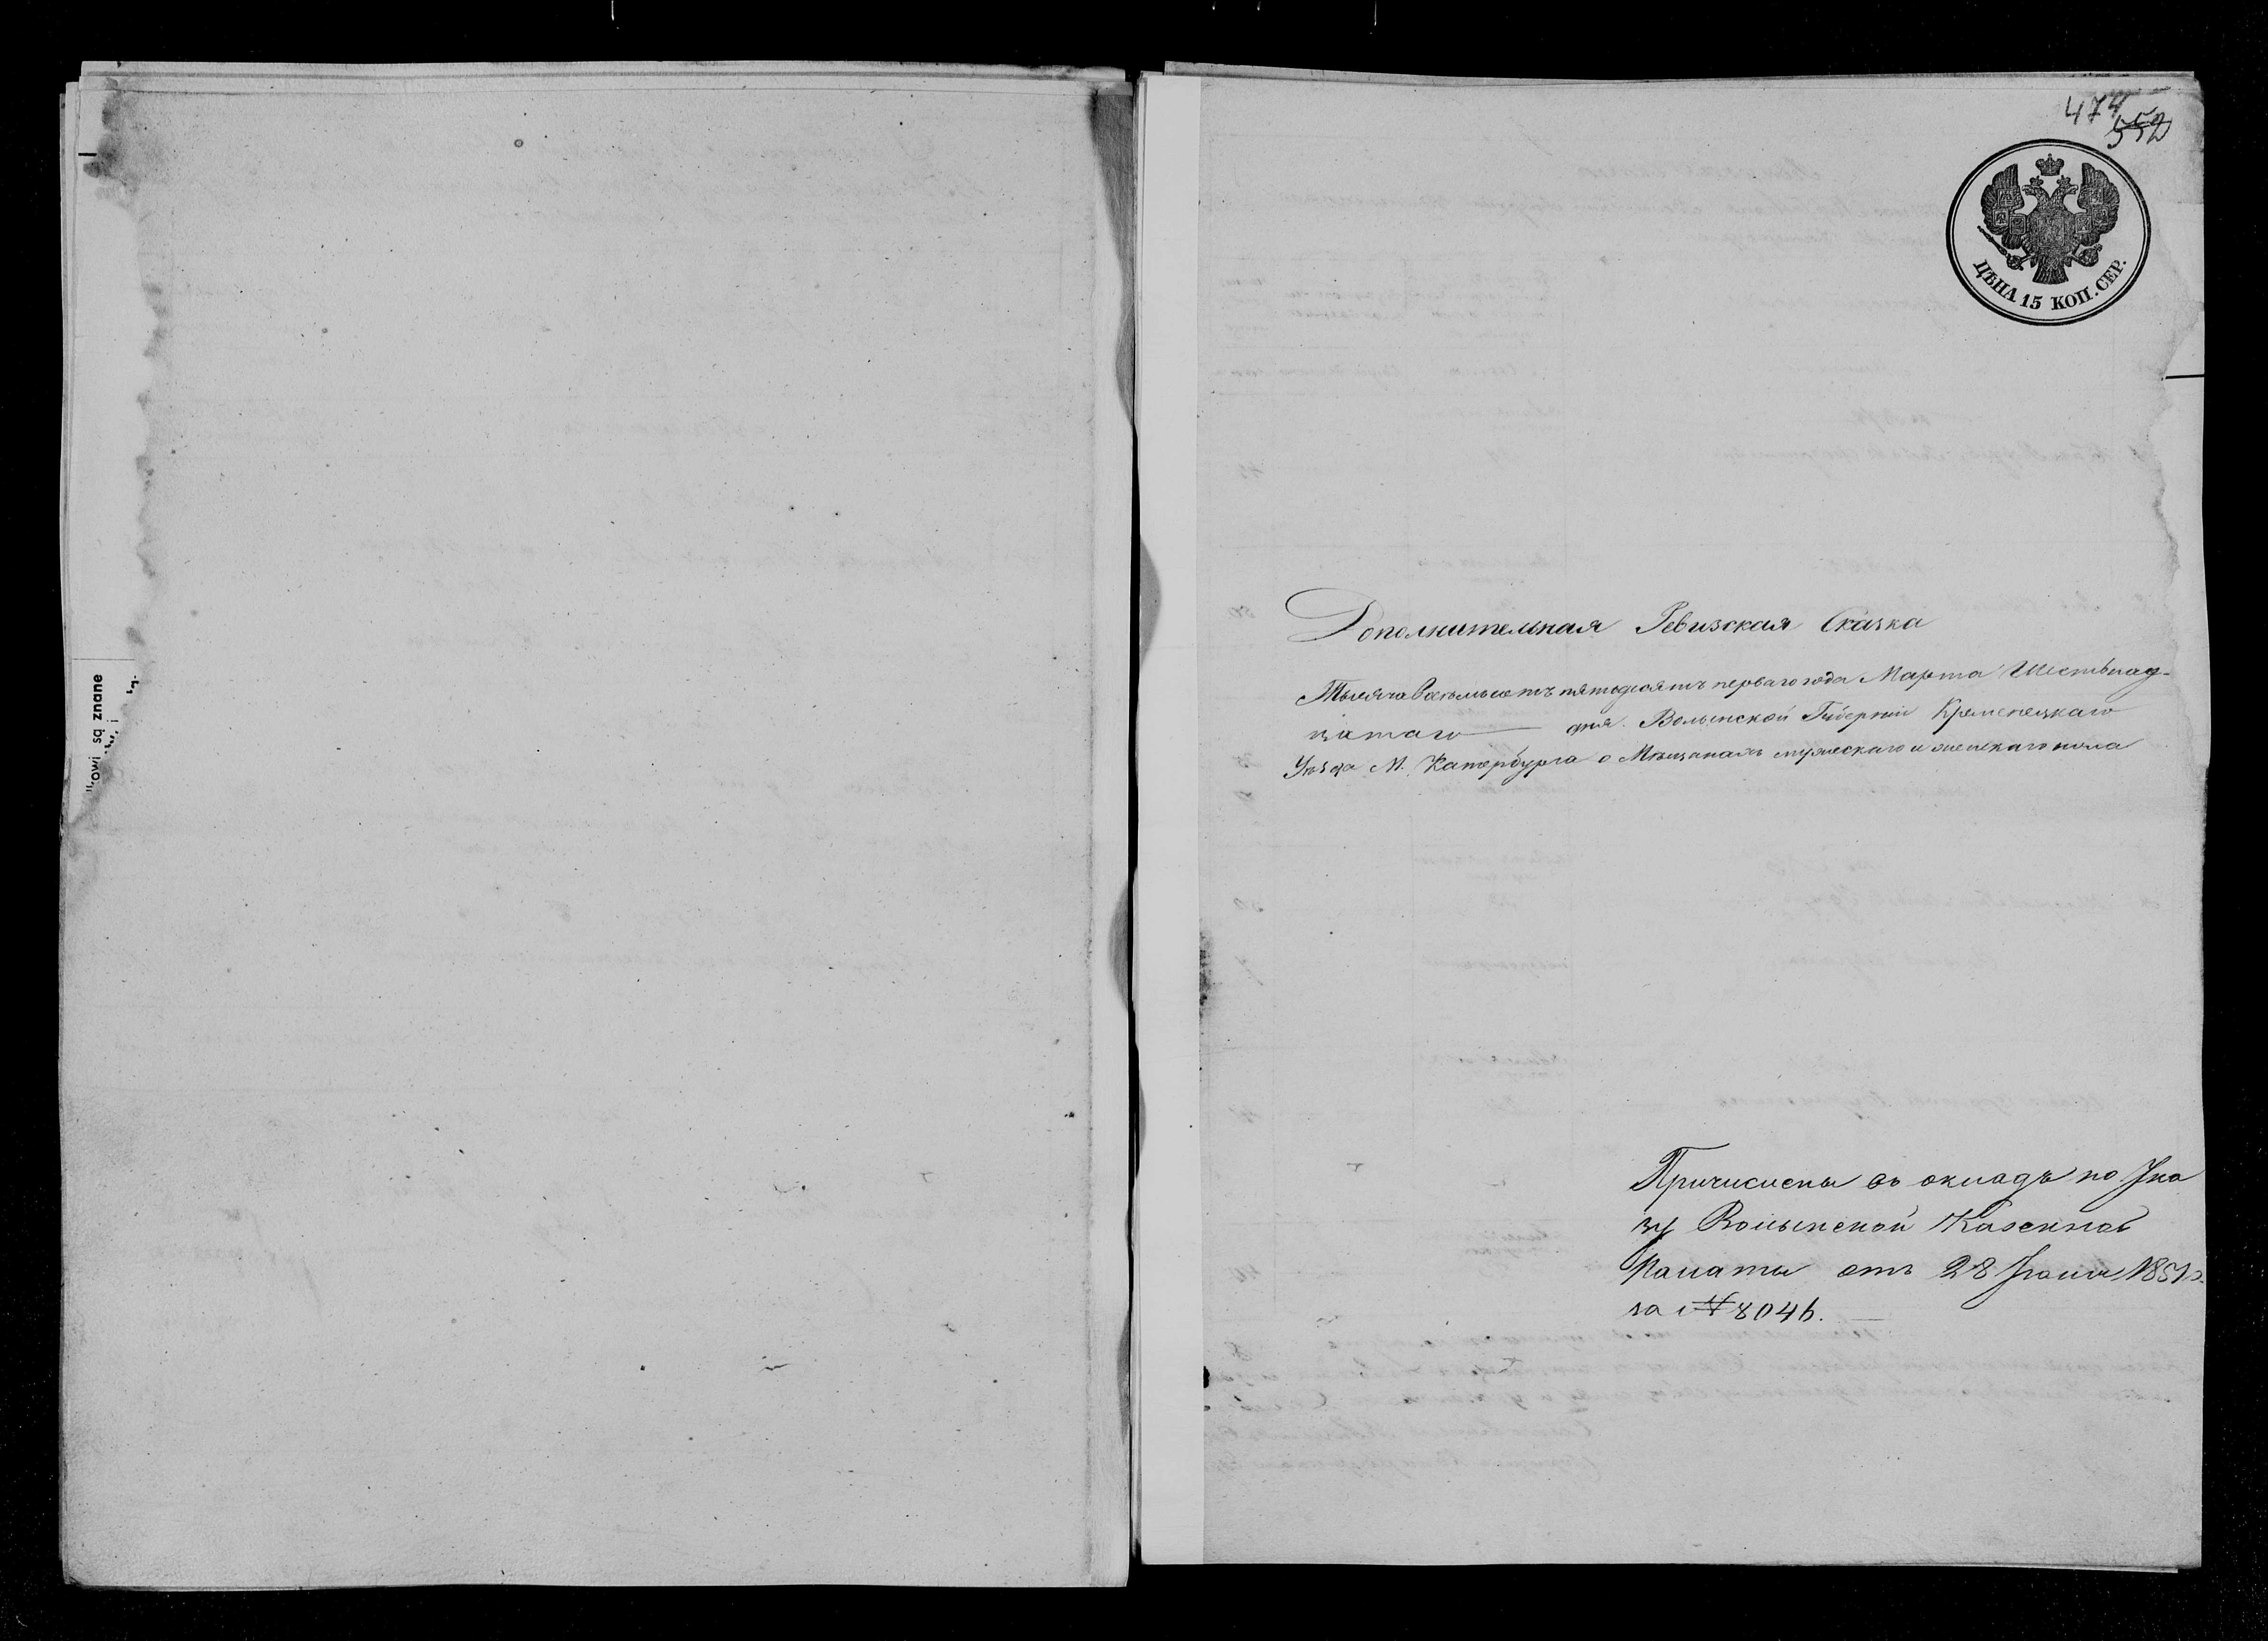 są znane
474
552
ЦѢНА 15 КОП. СЕР.
Дополнительная Ревизская Сказка
Тысяча Восемьсотъ пятьдесятъ перваго года Марта Шестьнад-
цатаго дня. Волынской Губерніи Кременецкаго
Уѣзда М. Катербурга о Мѣщанахъ мужескаго и женскаго пола
Причислены въ окладъ по Ука
зу Волынской Казенной
Палаты отъ 28 1851 г.
за № 8046.